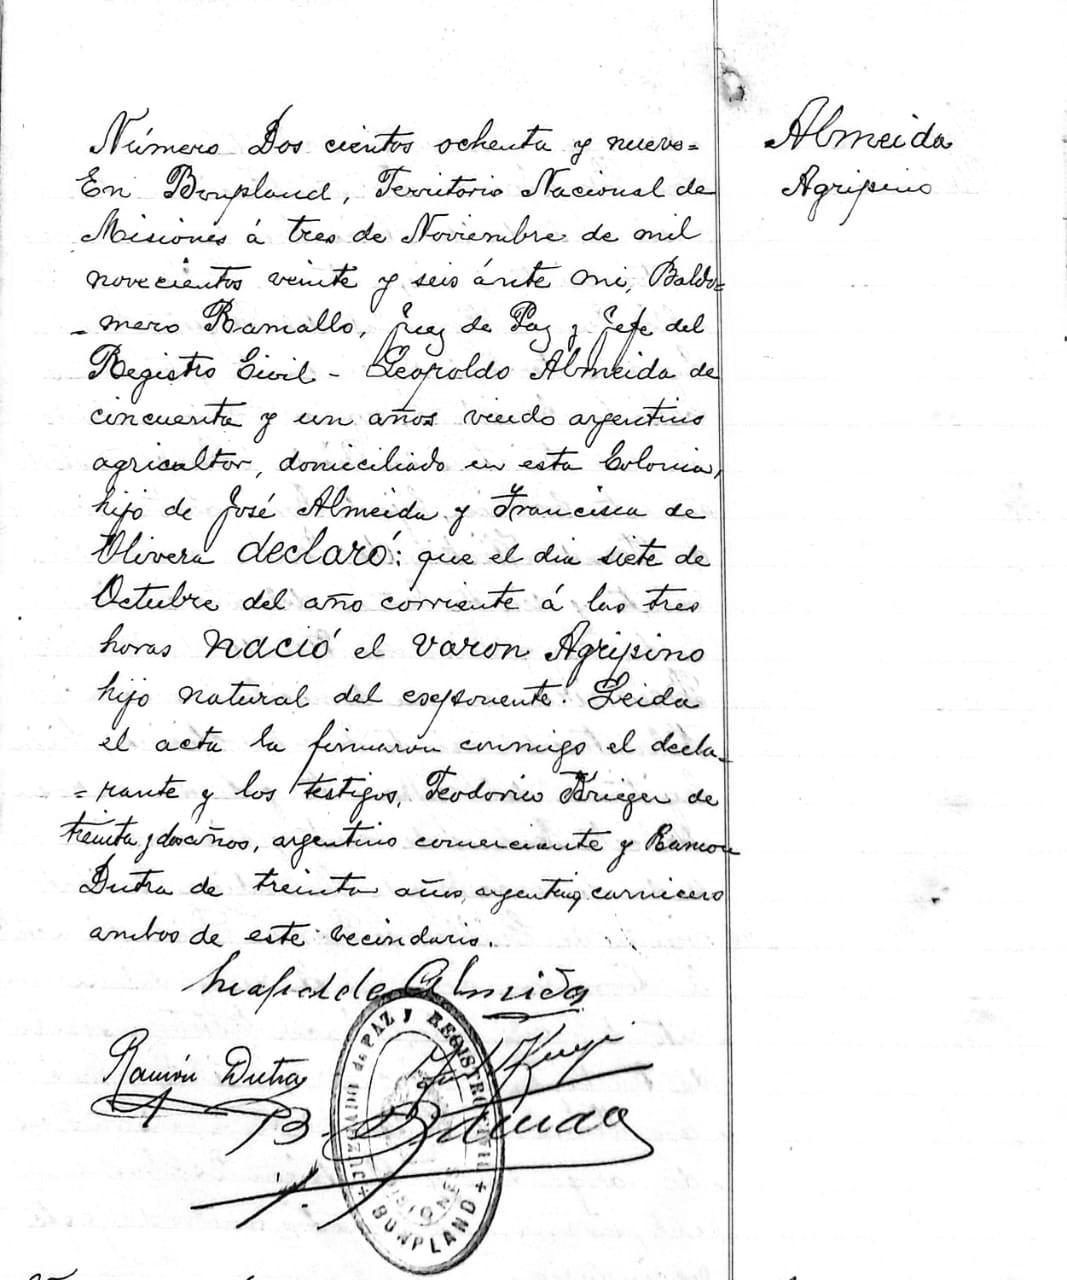 Número Dos cientos ochenta y nueve=
En Bonpland, Territorio Nacional de
Misiones á tres de Noviembre de mil
novecientos veinte y seis ánte mi, Baldo=
- mero Ramallo, Juez de Paz y Jefe del
Registro Civil - Leopoldo Almeida de
cincuenta y un años viudo argentino
agricultor, domiciliado en esta Colonia,
hijo de José Almeida y Francisca de
Olivera declaró: que el dia siete de
Octubre del año corriente á las tres
horas nació el varon Agripino
hijo natural del exponente. Leida
el acta la firmaron conmigo el decla-
= rante y los testigos, Teodorico Krieger de
treinta y dos años, argentino comerciante y Ramon
Dutra de treinta años, argentino, carnicero
ambos de este vecindario.
Almeida
Agripino
Almeida
Ramón Dutra
B.
JUZGADO de PAZ Y REGISTRO CIVIL
MISIONES
+ BONPLAND +